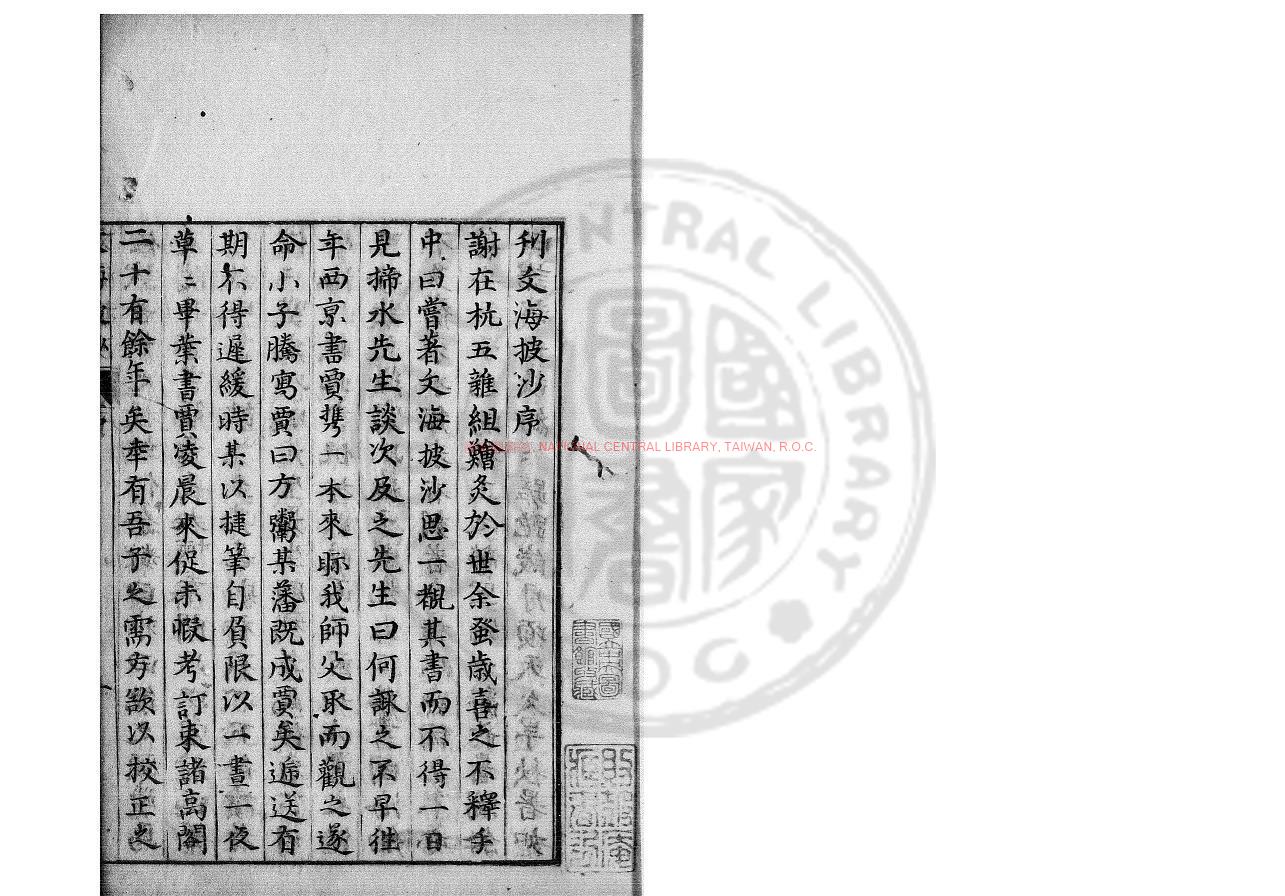 刊文海披沙序
謝在杭五雜組繪灸於世余蚤歳喜之不釋手
中曰嘗著文海披沙思一覩其書而不得一日
見揥水先生談次及之先生曰何諏之不早徃
年西亰書賈携一本來眎我師父取而觀之遂
命小子騰寫賈曰方鬻某藩既成賈矣逓送有
期不得遲緩時某以捷筆自負限以一晝一夜
草〻畢業書賈凌晨來促未暇考訂束諸高閣
二十有餘年矣幸有吾子之需方欲以挍正之
NATIONAL CENTRAL LIBRARY, TAIWAN, R.O.C.
CENTRAL LIBRARY